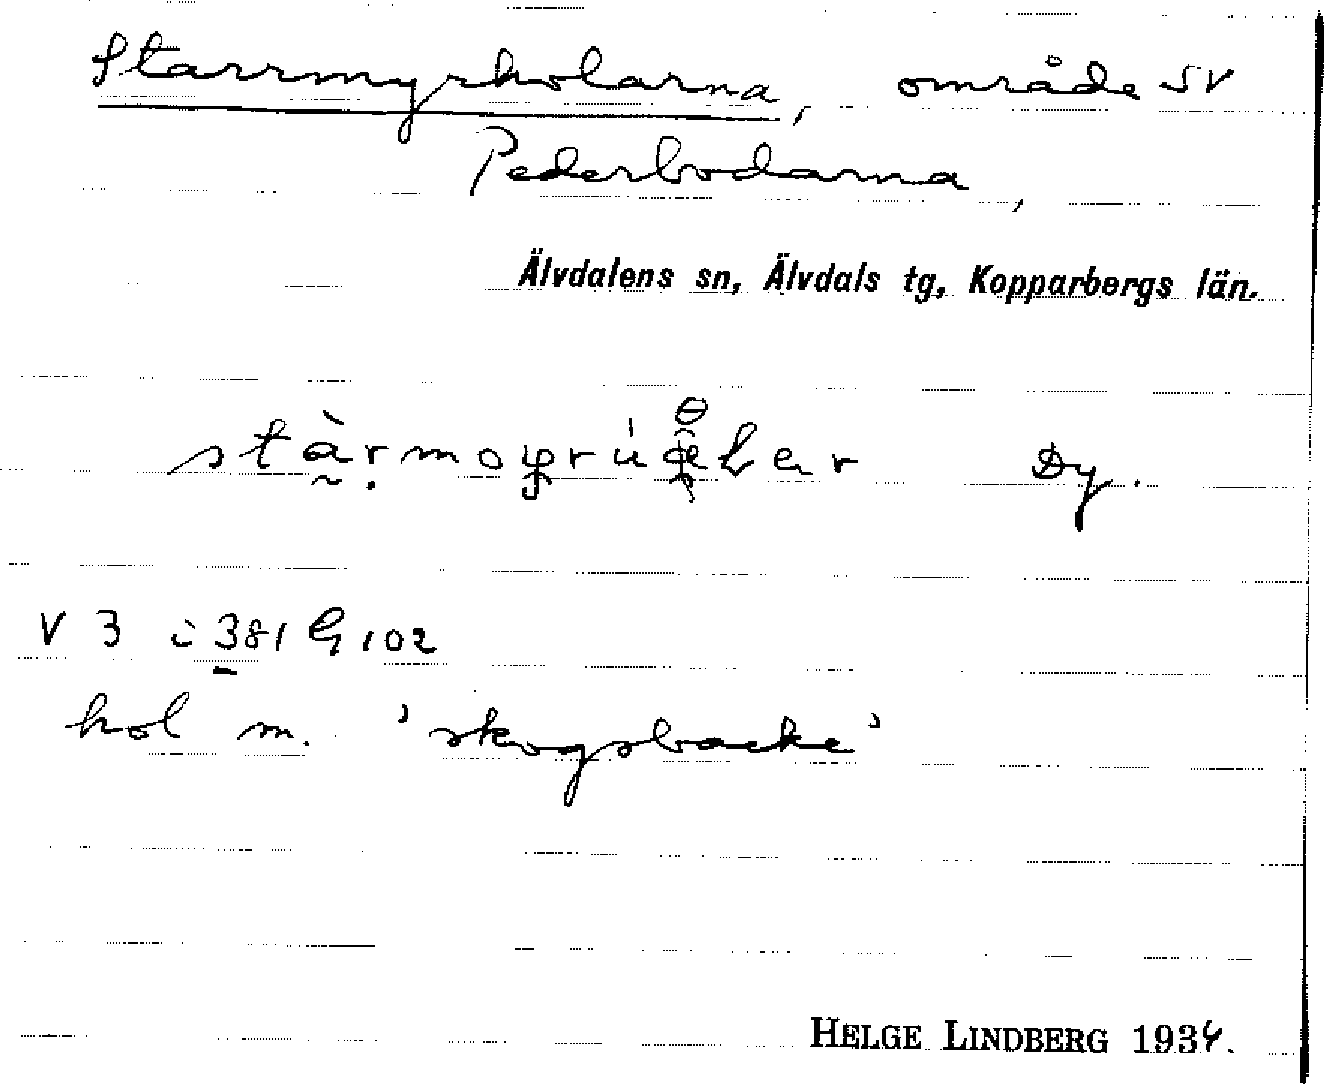 Starrmyrholarna, område SV
Pederbodarna,
Älvdalens sn, Älvdals tg, Kopparbergs län.
Dy.
V 3 c 381 G 102
hol m. 'skogsbacke'
HELGE LINDBERG 1934.